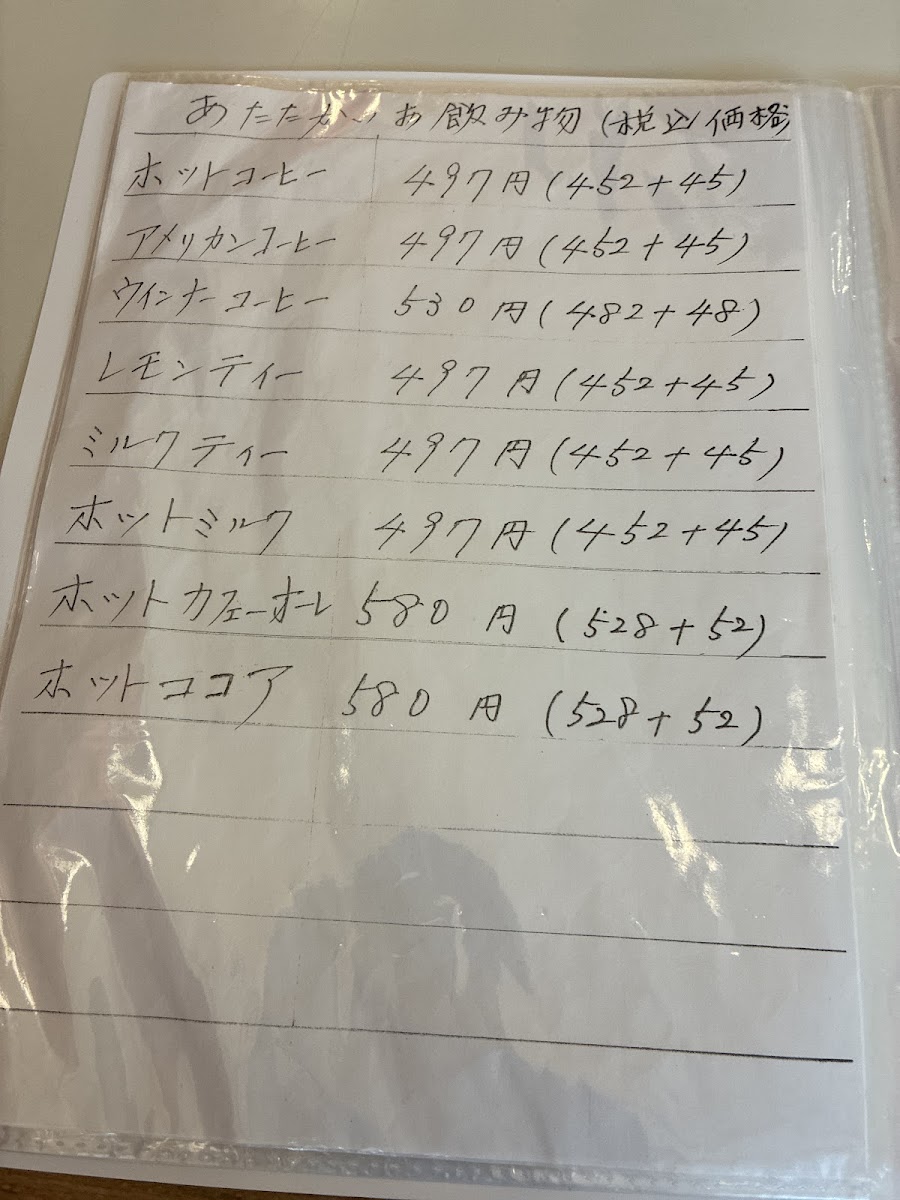 あたたかいお飲み物(税込価格)
ホットコーヒー 497円(452+45)
アメリカンコーヒー 497円(452+45)
ウインナーコーヒー 530円(482+48)
レモンティー 497円(452+45)
ミルクティー 497円(452+45)
ホットミルク 497円(452+45)
ホットカフェーオーレ 580円(528+52)
ホットココア 580円(528+52)